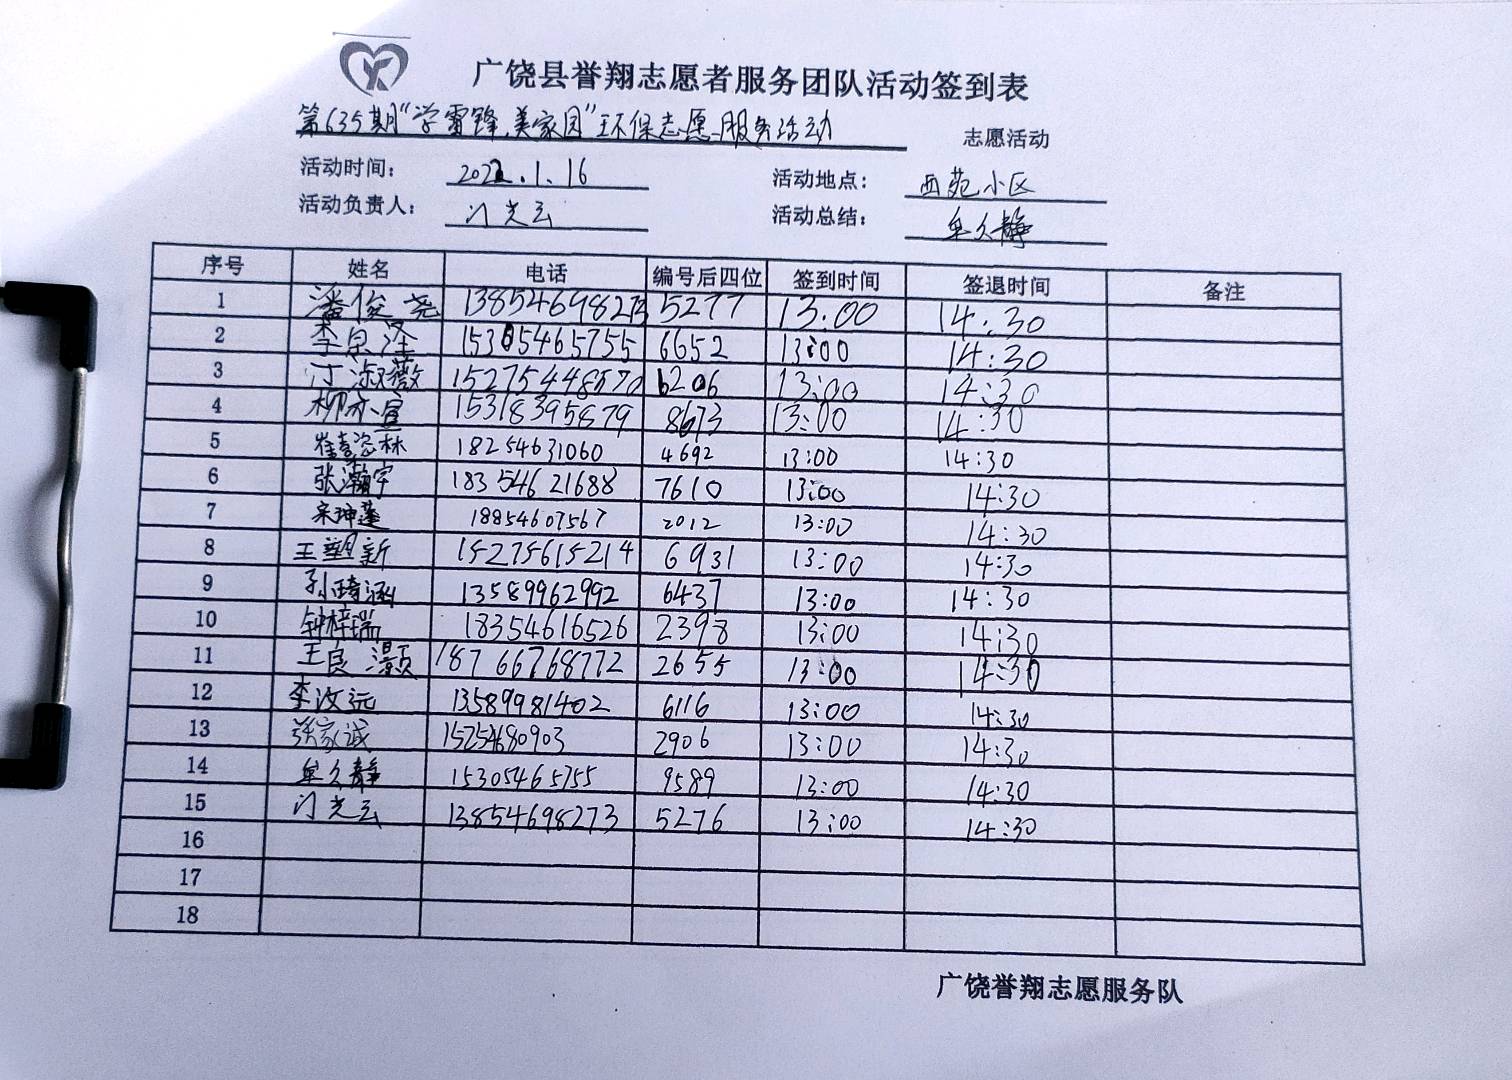 广饶县誉翔志愿者服务团队活动签到表
第635期“学雷锋,美家园”环保志愿服务活动 志愿活动
活动时间: 2022.1.16 活动地点: 西苑小区
活动负责人: 门光云 活动总结: 牟久静
序号 姓名 电话 编号后四位 签到时间 签退时间 备注
1 潘俊尧 13854698273 5277 13:00 14:30
2 李思泽 15305465755 6652 13:00 14:30
3 汀淑薇 15275448570 6206 13:00 14:30
4 柳亦宣 15318395879 8673 13:00 14:30
5 崔喜姿林 18254631060 4692 13:00 14:30
6 张瀚宇 18354621688 7610 13:00 14:30
7 宋珅蓬 18854607567 2012 13:00 14:30
8 王塑新 15275615214 6931 13:00 14:30
9 孙琦涵 13589962992 6437 13:00 14:30
10 钟梓瑞 18354616526 2398 13:00 14:30
11 王良灏 18766768772 2655 13:00 14:30
12 李汶远 13589981402 6116 13:00 14:30
13 张家诚 15254680903 2906 13:00 14:30
14 牟久静 15305465755 9589 13:00 14:30
15 门光云 13854698273 5276 13:00 14:30
16
17
18
广饶誉翔志愿服务队